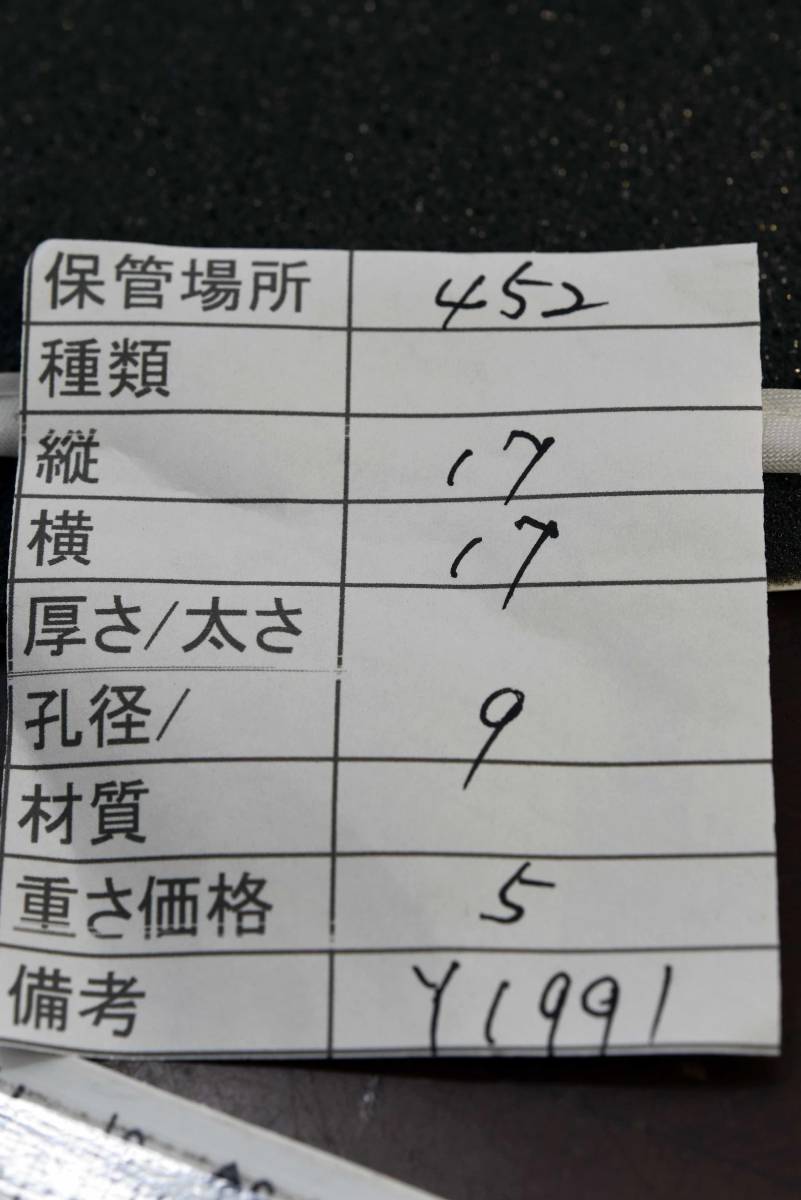 保管場所 452
種類
縦 17
横 17
厚さ/太さ
孔径/ 9
材質
重さ価格 5
備考 Y1991